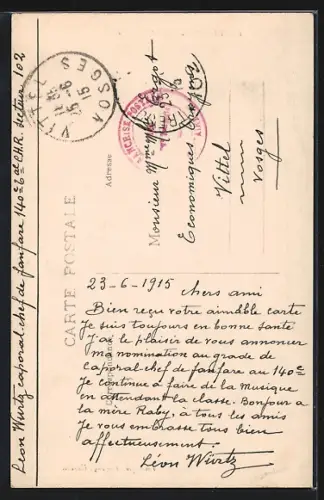 VITTEL
VOSGES
25-6
15
FRANCHISE POSTALE
CARTE POSTALE
Adresse
Monsieur
Économiques
Vittel
Vosges
23-6-1915
chers ami
Bien reçu votre aimable carte
Je suis toujours en bonne santé
J'ai le plaisir de vous annoncer
ma nomination au grade de
Caporal-chef de fanfare au 140e
Je continue a faire de la Musique
en attendant la classe. Bonjour a
la mère Raby, à tous les amis
Je vous embrasse tous bien
affectueusement.
Léon Würtz
Léon Würtz caporal-chef de fanfare 140e secteur 102